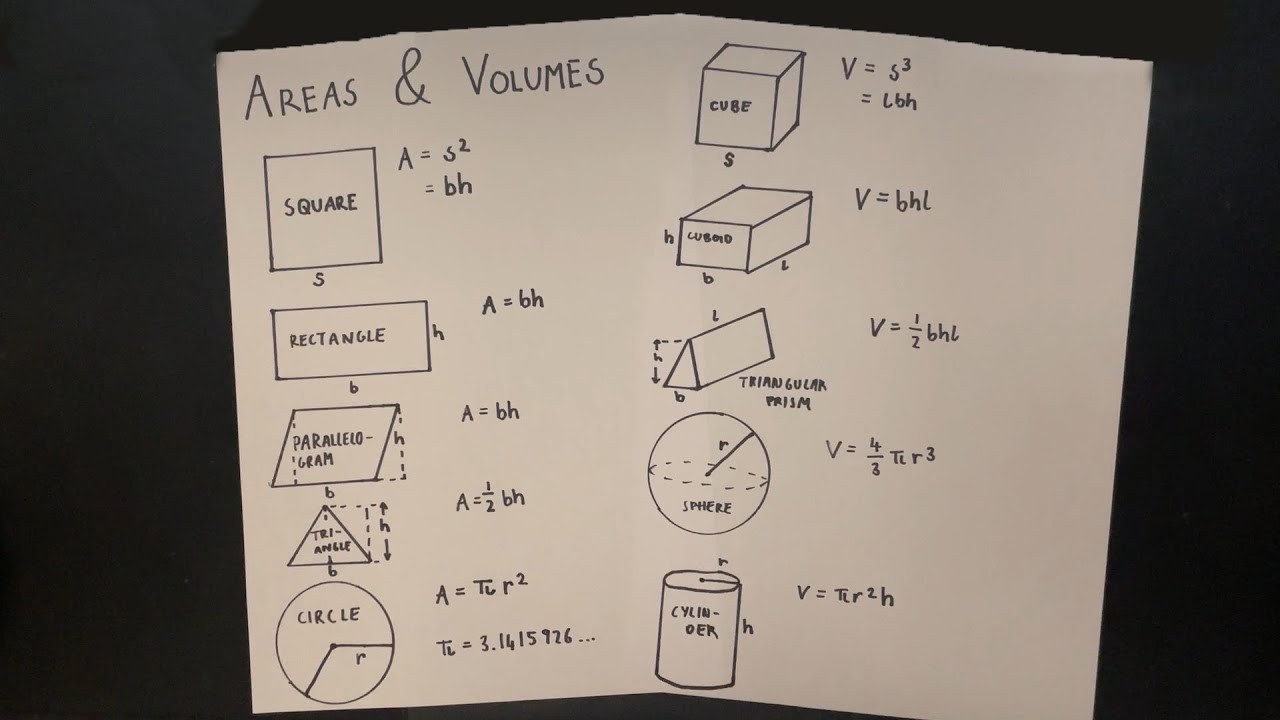 AREAS & VOLUMES
SQUARE
s
A = s²
= bh
RECTANGLE
h
b
A = bh
PARALLELO-
GRAM
h
b
A = bh
TRI-
ANGLE
h
b
A = ½ bh
CIRCLE
r
A = π r²
π = 3.1415926...
CUBE
s
V = s³
= lbh
CUBOID
h
b
l
V = bhl
l
h
b
TRIANGULAR
PRISM
V = ½ bhl
r
SPHERE
V = 4/3 π r³
r
CYLIN-
DER
h
V = πr²h